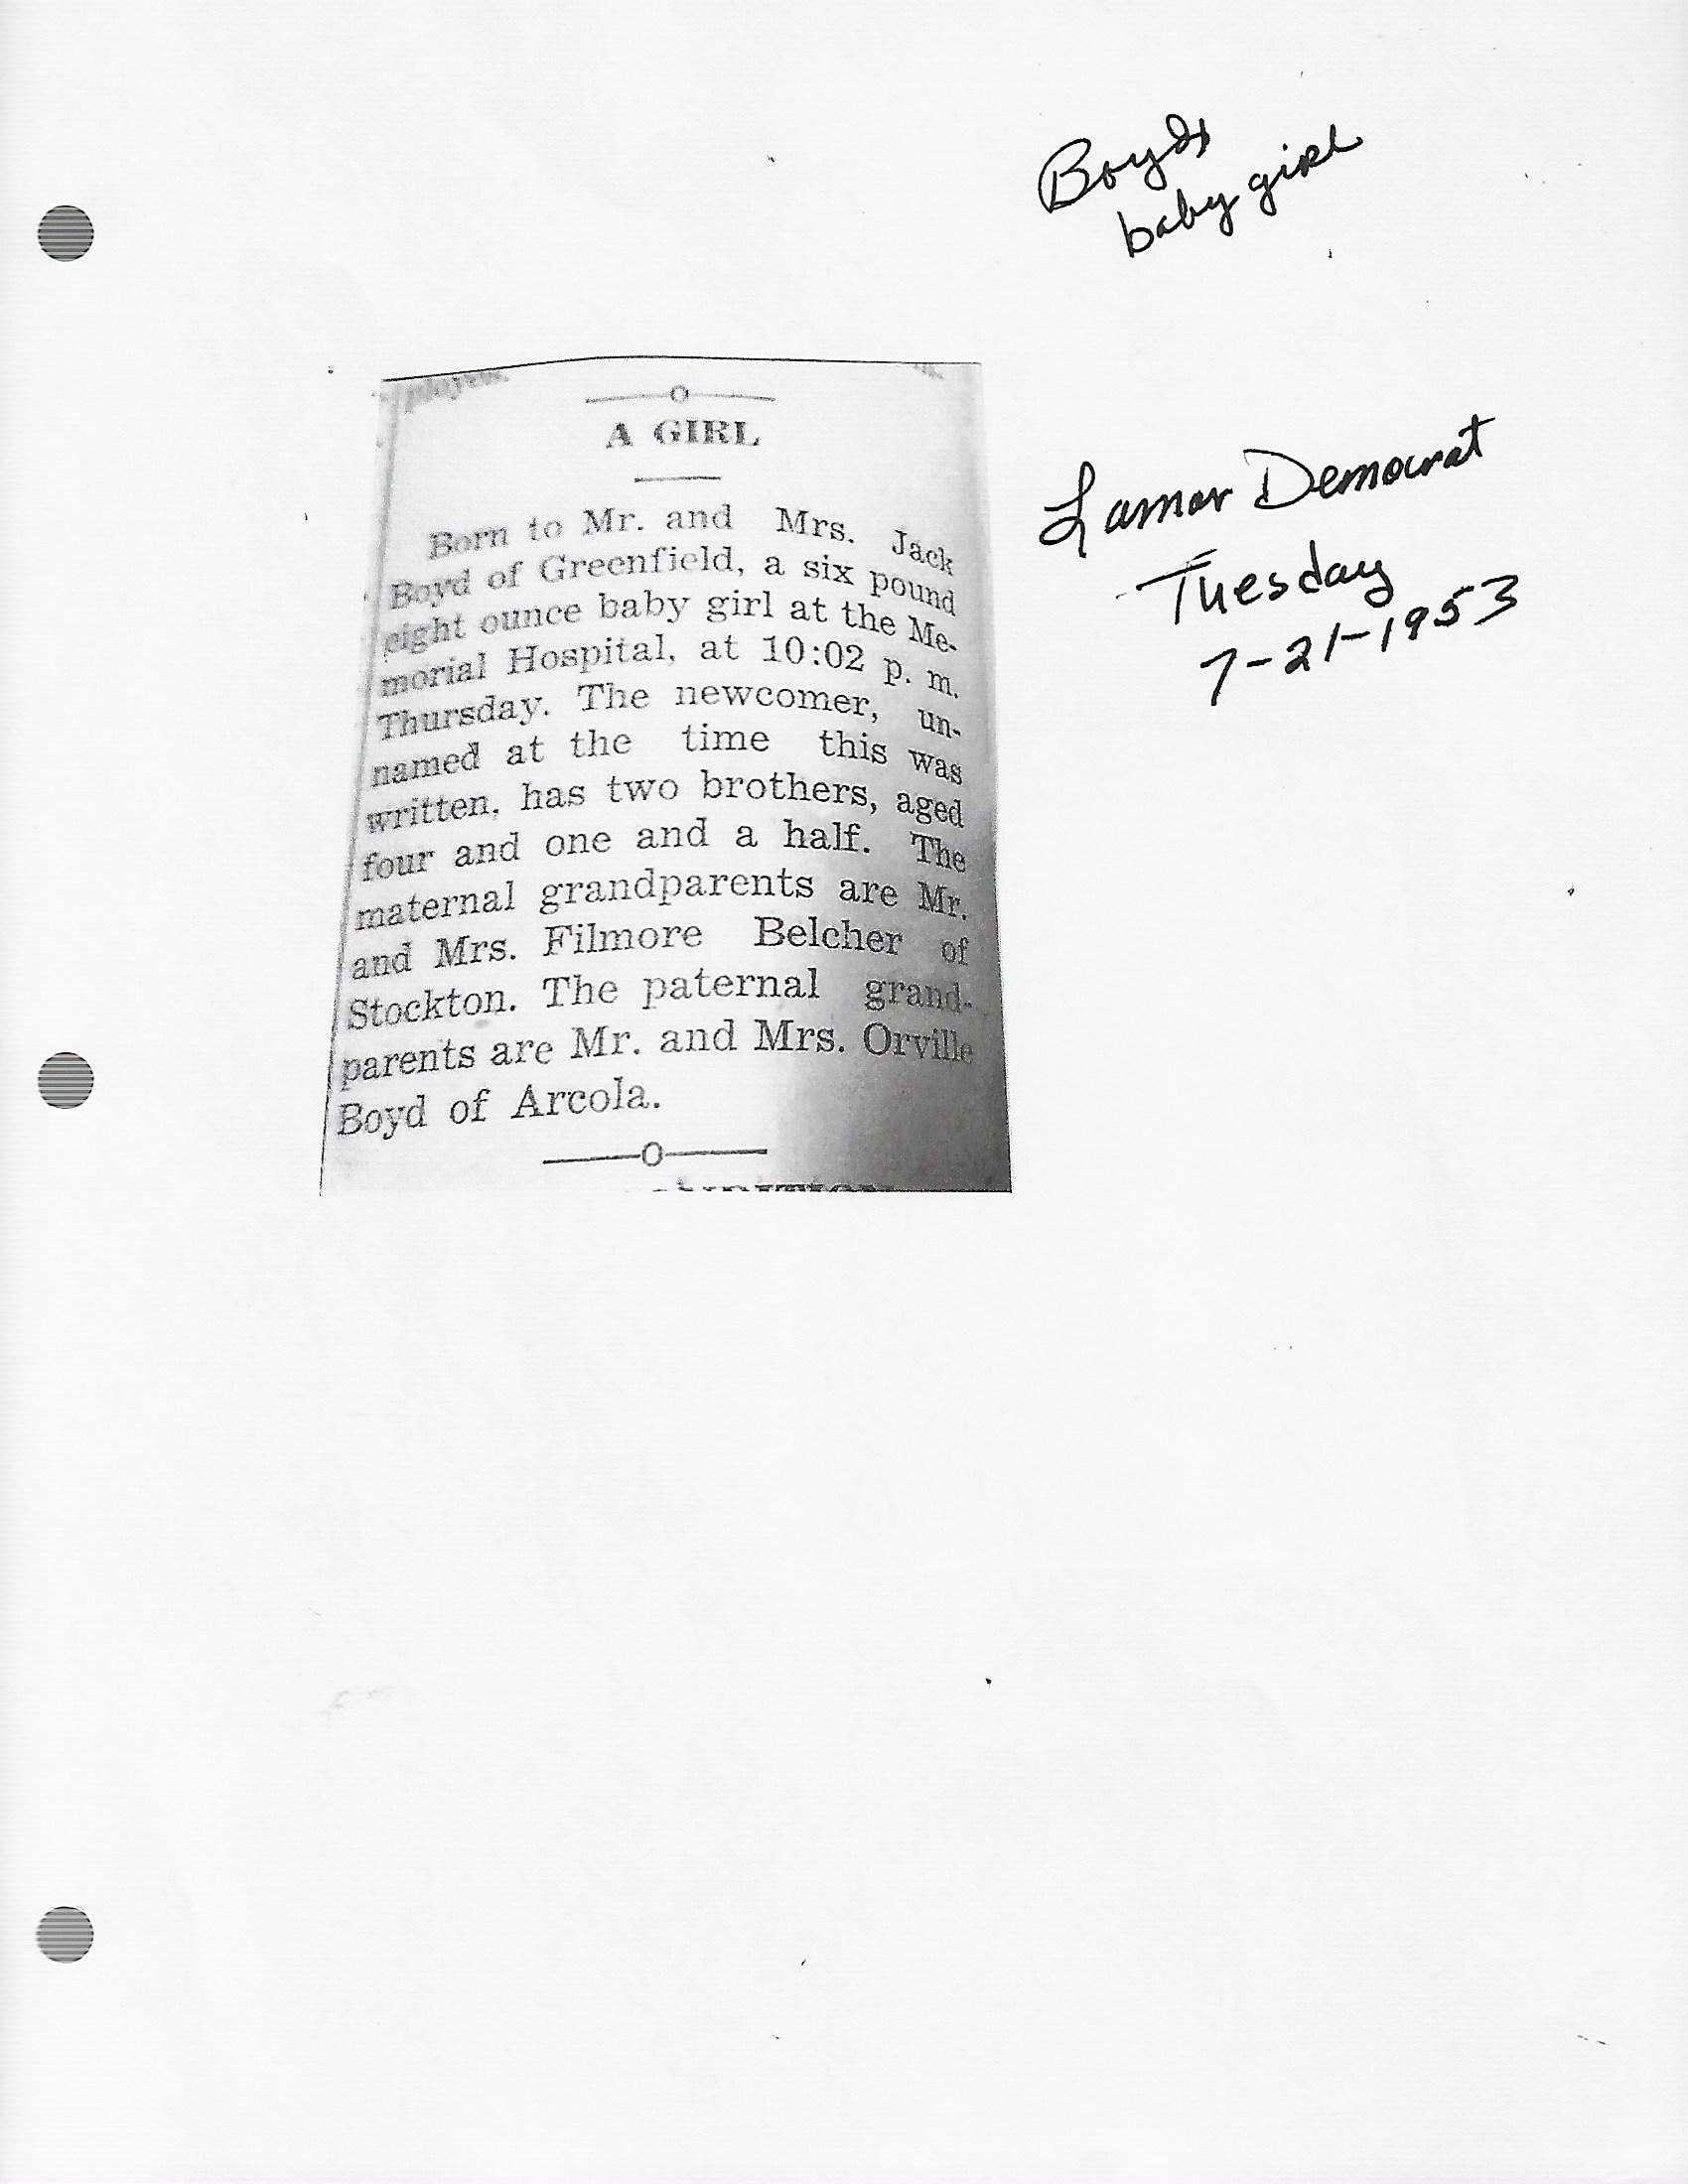 Boyds
baby girl
A GIRL
Born to Mr. and Mrs. Jack
Boyd of Greenfield, a six pound
eight ounce baby girl at the Me-
morial Hospital, at 10:02 p. m.
Thursday. The newcomer, un-
named at the time this was
written, has two brothers, aged
four and one and a half. The
maternal grandparents are Mr.
and Mrs. Filmore Belcher of
Stockton. The paternal grand-
parents are Mr. and Mrs. Orville
Boyd of Arcola.
Lamar Democrat
Tuesday
7-21-1953